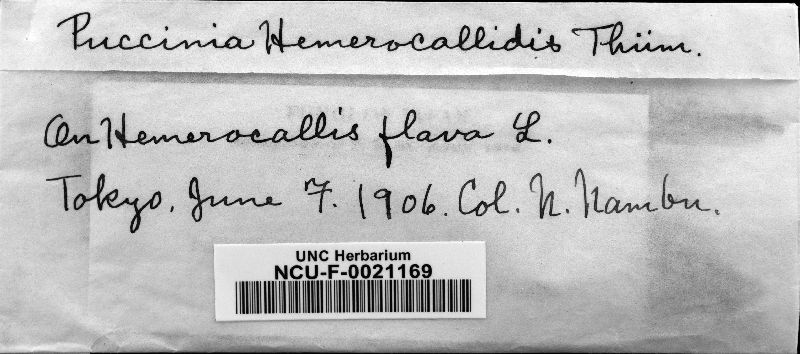 Puccinia Hemerocallidis Thüm.
On Hemerocallis flava L.
Tokyo. June 7. 1906. Col. N. Nambu.
UNC Herbarium
NCU-F-0021169